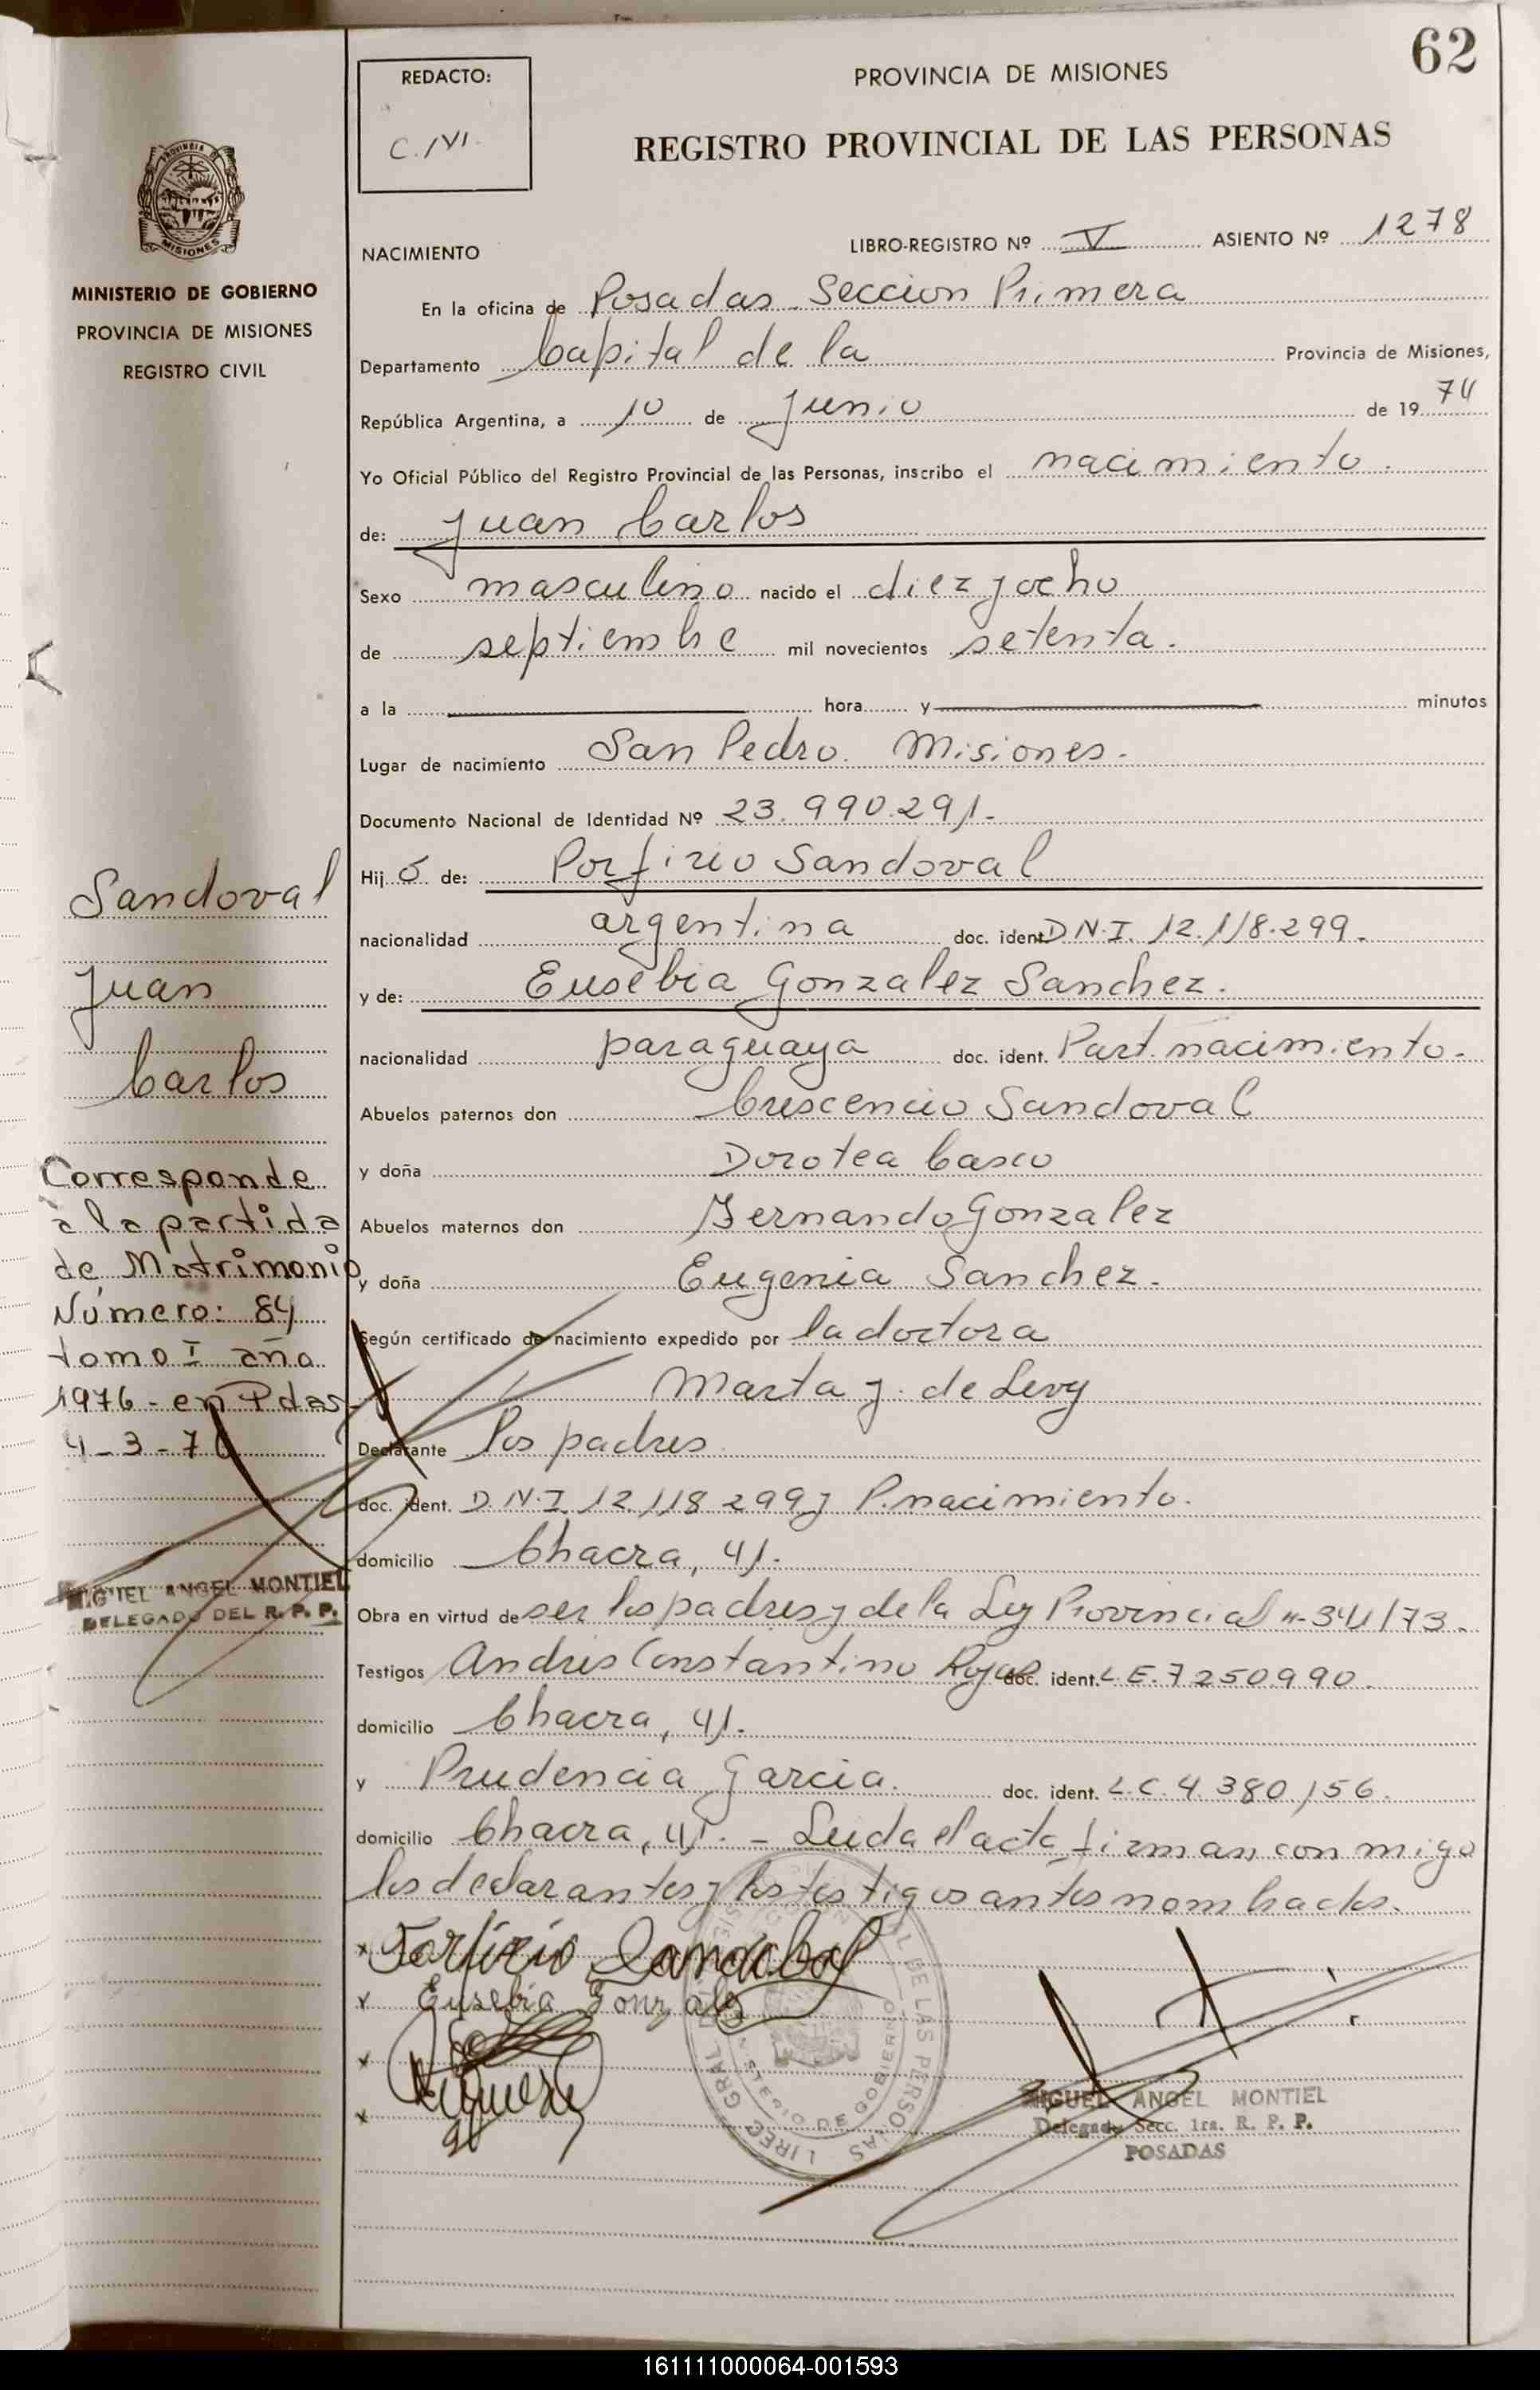 62
REDACTO:
PROVINCIA DE MISIONES
REGISTRO PROVINCIAL DE LAS PERSONAS
PROVINCIA DE
MISIONES
MINISTERIO DE GOBIERNO
PROVINCIA DE MISIONES
REGISTRO CIVIL
NACIMIENTO LIBRO-REGISTRO Nº V ASIENTO Nº 1278
En la oficina de Posadas Seccion Primera
Departamento Capital de la Provincia de Misiones,
República Argentina, a 10 de Junio de 19 74
Yo Oficial Público del Registro Provincial de las Personas, inscribo el nacimiento.
de: Juan Carlos
Sexo masculino nacido el diez y ocho
de septiembre mil novecientos setenta.
a la hora y minutos
Lugar de nacimiento San Pedro. Misiones.
Documento Nacional de Identidad Nº 23.990.291.
Hij o de: Porfirio Sandoval
nacionalidad argentina doc. ident. D.N.I. 12.118.299.
y de: Eusebia Gonzalez Sanchez.
nacionalidad paraguaya doc. ident. Part. nacimiento.
Abuelos paternos don Crescencio Sandoval
y doña Dorotea Casco
Abuelos maternos don Fernando Gonzalez
y doña Eugenia Sanchez.
Según certificado de nacimiento expedido por la doctora
Marta J. de Levy
Declarante los padres
doc. ident. D.N.I 12.118 299 y P. nacimiento.
domicilio Chacra, 41.
Obra en virtud de ser los padres y de la Ley Provincial n- 341/73.
Testigos Andres Constantino Rojas doc. ident. L.E. 7250990.
domicilio Chacra, 41.
y Prudencia Garcia. doc. ident. L.C. 4.380,156.
domicilio Chacra, 41. - Leida el acta firman con migo
los declarantes y los testigos antes nombrados.
Sandoval
Juan
Carlos
Corresponde
a la partida
de Matrimonio
Número: 84
tomo I año
1976 - en Pdas.
4-3-76
MIGUEL ANGEL MONTIEL
DELEGADO DEL R. P. P.
x Porfirio Sandobal
x Eusebia Gonzalez
x
x
MIGUEL ANGEL MONTIEL
Delegado Secc. 1ra. R. P. P.
POSADAS
161111000064-001593